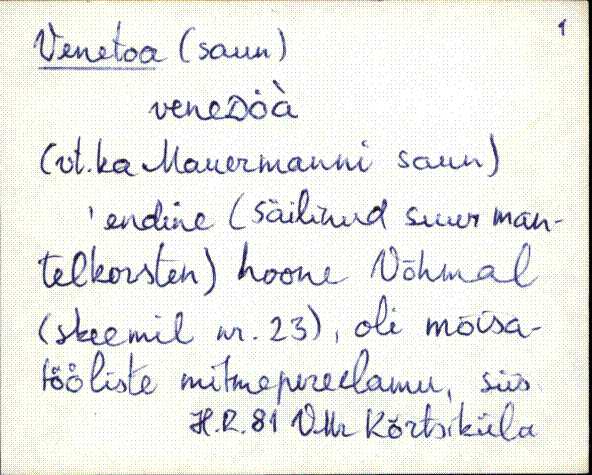 1
Venetoa (saun)
veneDöà
(vt. ka Mauermanni saun)
'endine (säilinud suur man-
telkorsten) hoone Võhmal
(skeemil nr. 23), oli mõisa-
tööliste mitmepereelamu, siis
H.R. 81 VMr Kõrtsiküla